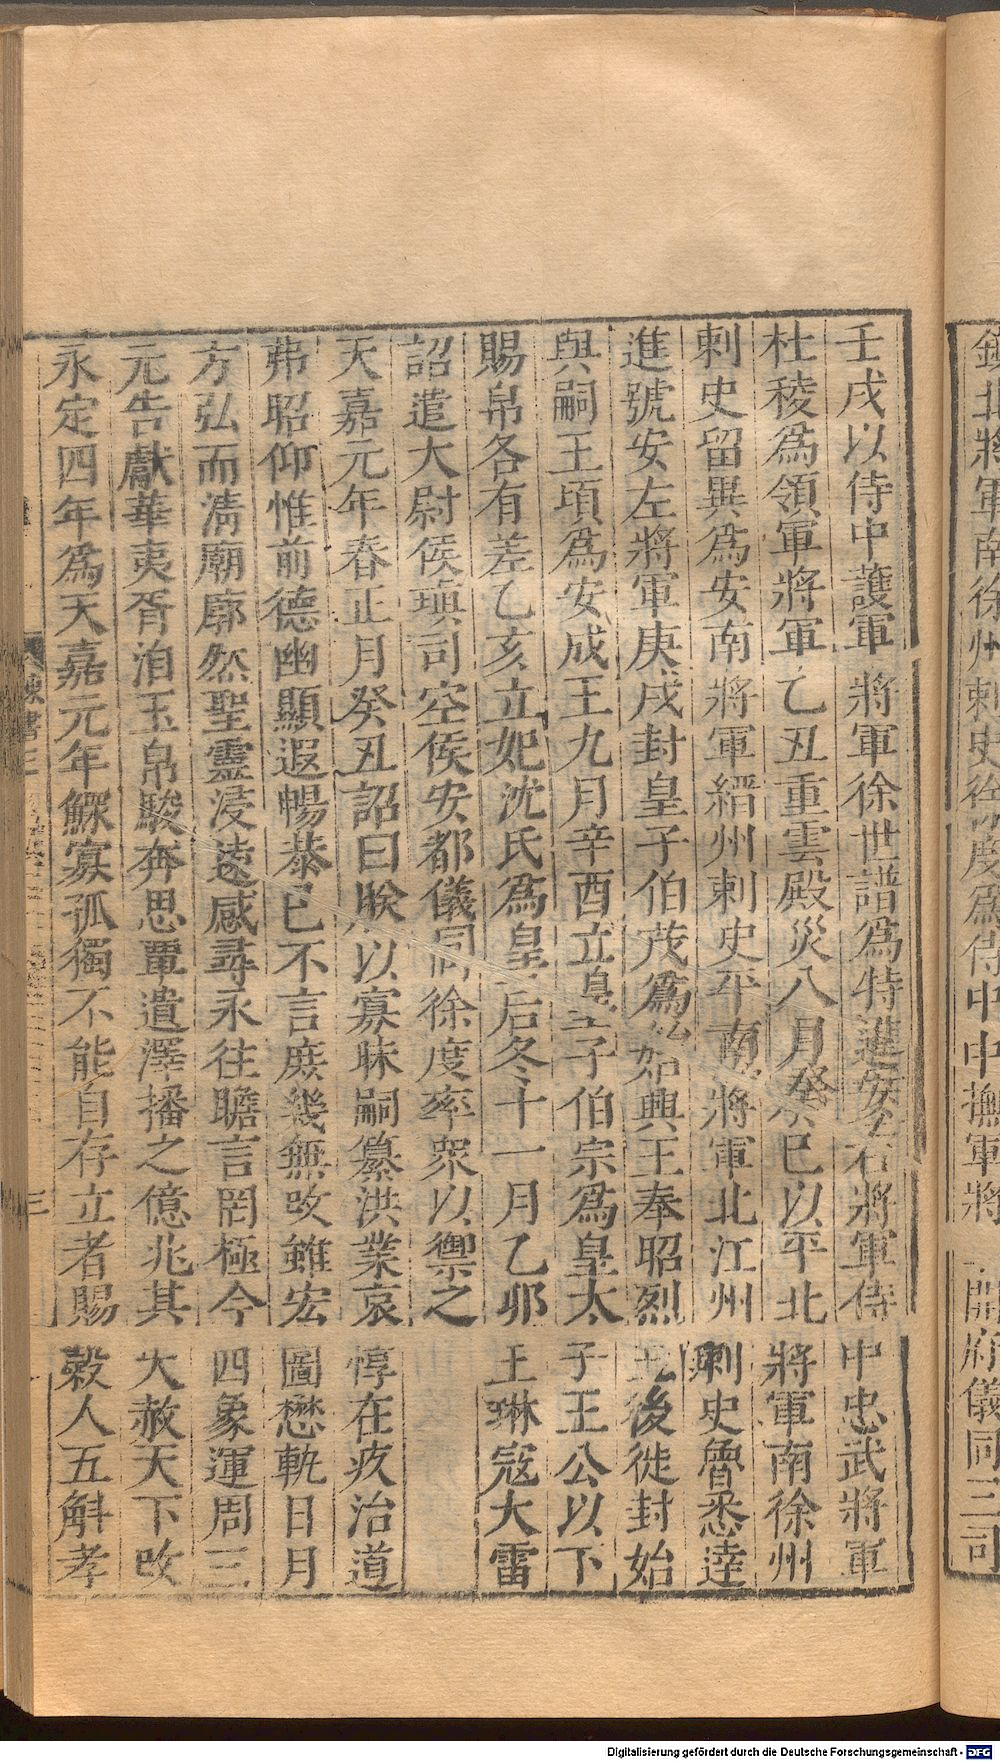 鎮北將軍南徐州刺史徐度爲侍中中撫軍將軍開府儀同三司
壬戌以侍中護軍將軍徐世譜爲特進安右將軍侍中忠武將軍
杜稜爲領軍將軍乙丑重雲殿災八月癸巳以平北將軍南徐州
刺史留異爲安南將軍縉州刺史平南將軍北江州刺史魯悉達
進號安左將軍庚戌封皇子伯茂爲始興王奉昭烈王後徙封始
興嗣王頊爲安成王九月辛酉立皇子伯宗爲皇太子王公以下
賜帛各有差乙亥立妃沈氏爲皇后冬十一月乙卯王琳寇大雷
詔遣大尉侯瑱司空侯安都儀同徐度率眾以禦之
天嘉元年春正月癸丑詔曰朕以寡昧嗣纂洪業哀惸在疚治道
弗昭仰惟前德幽顯遐暢恭已不言庶幾無改雖宏圖懋軌日月
方弘而淸廟廓然聖靈浸遠感尋永往瞻言罔極今四象運周三
元告獻華夷胥洎玉帛駿奔思覃遺澤播之億兆其大赦天下改
永定四年爲天嘉元年鰥寡孤獨不能自存立者賜榖人五斛孝
陳書三
三
Digitalisierung gefördert durch die Deutsche Forschungsgemeinschaft - DFG